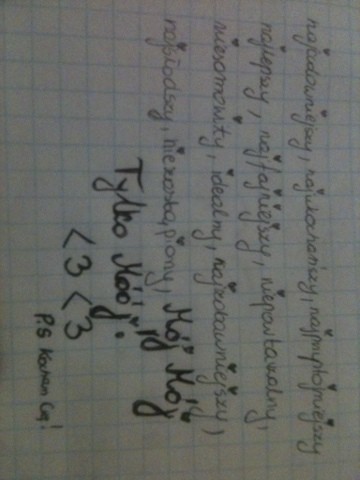 najcudowniejszy, najukochańszy, najprzystojniejszy
najlepszy, najfajniejszy, niepowtarzalny,
niesamowity, idealny, najzabawniejszy,
najsłodszy, niezastąpiony, Mój Mój
Tylko Mój!
<3 <3
P.S Kocham Cię!